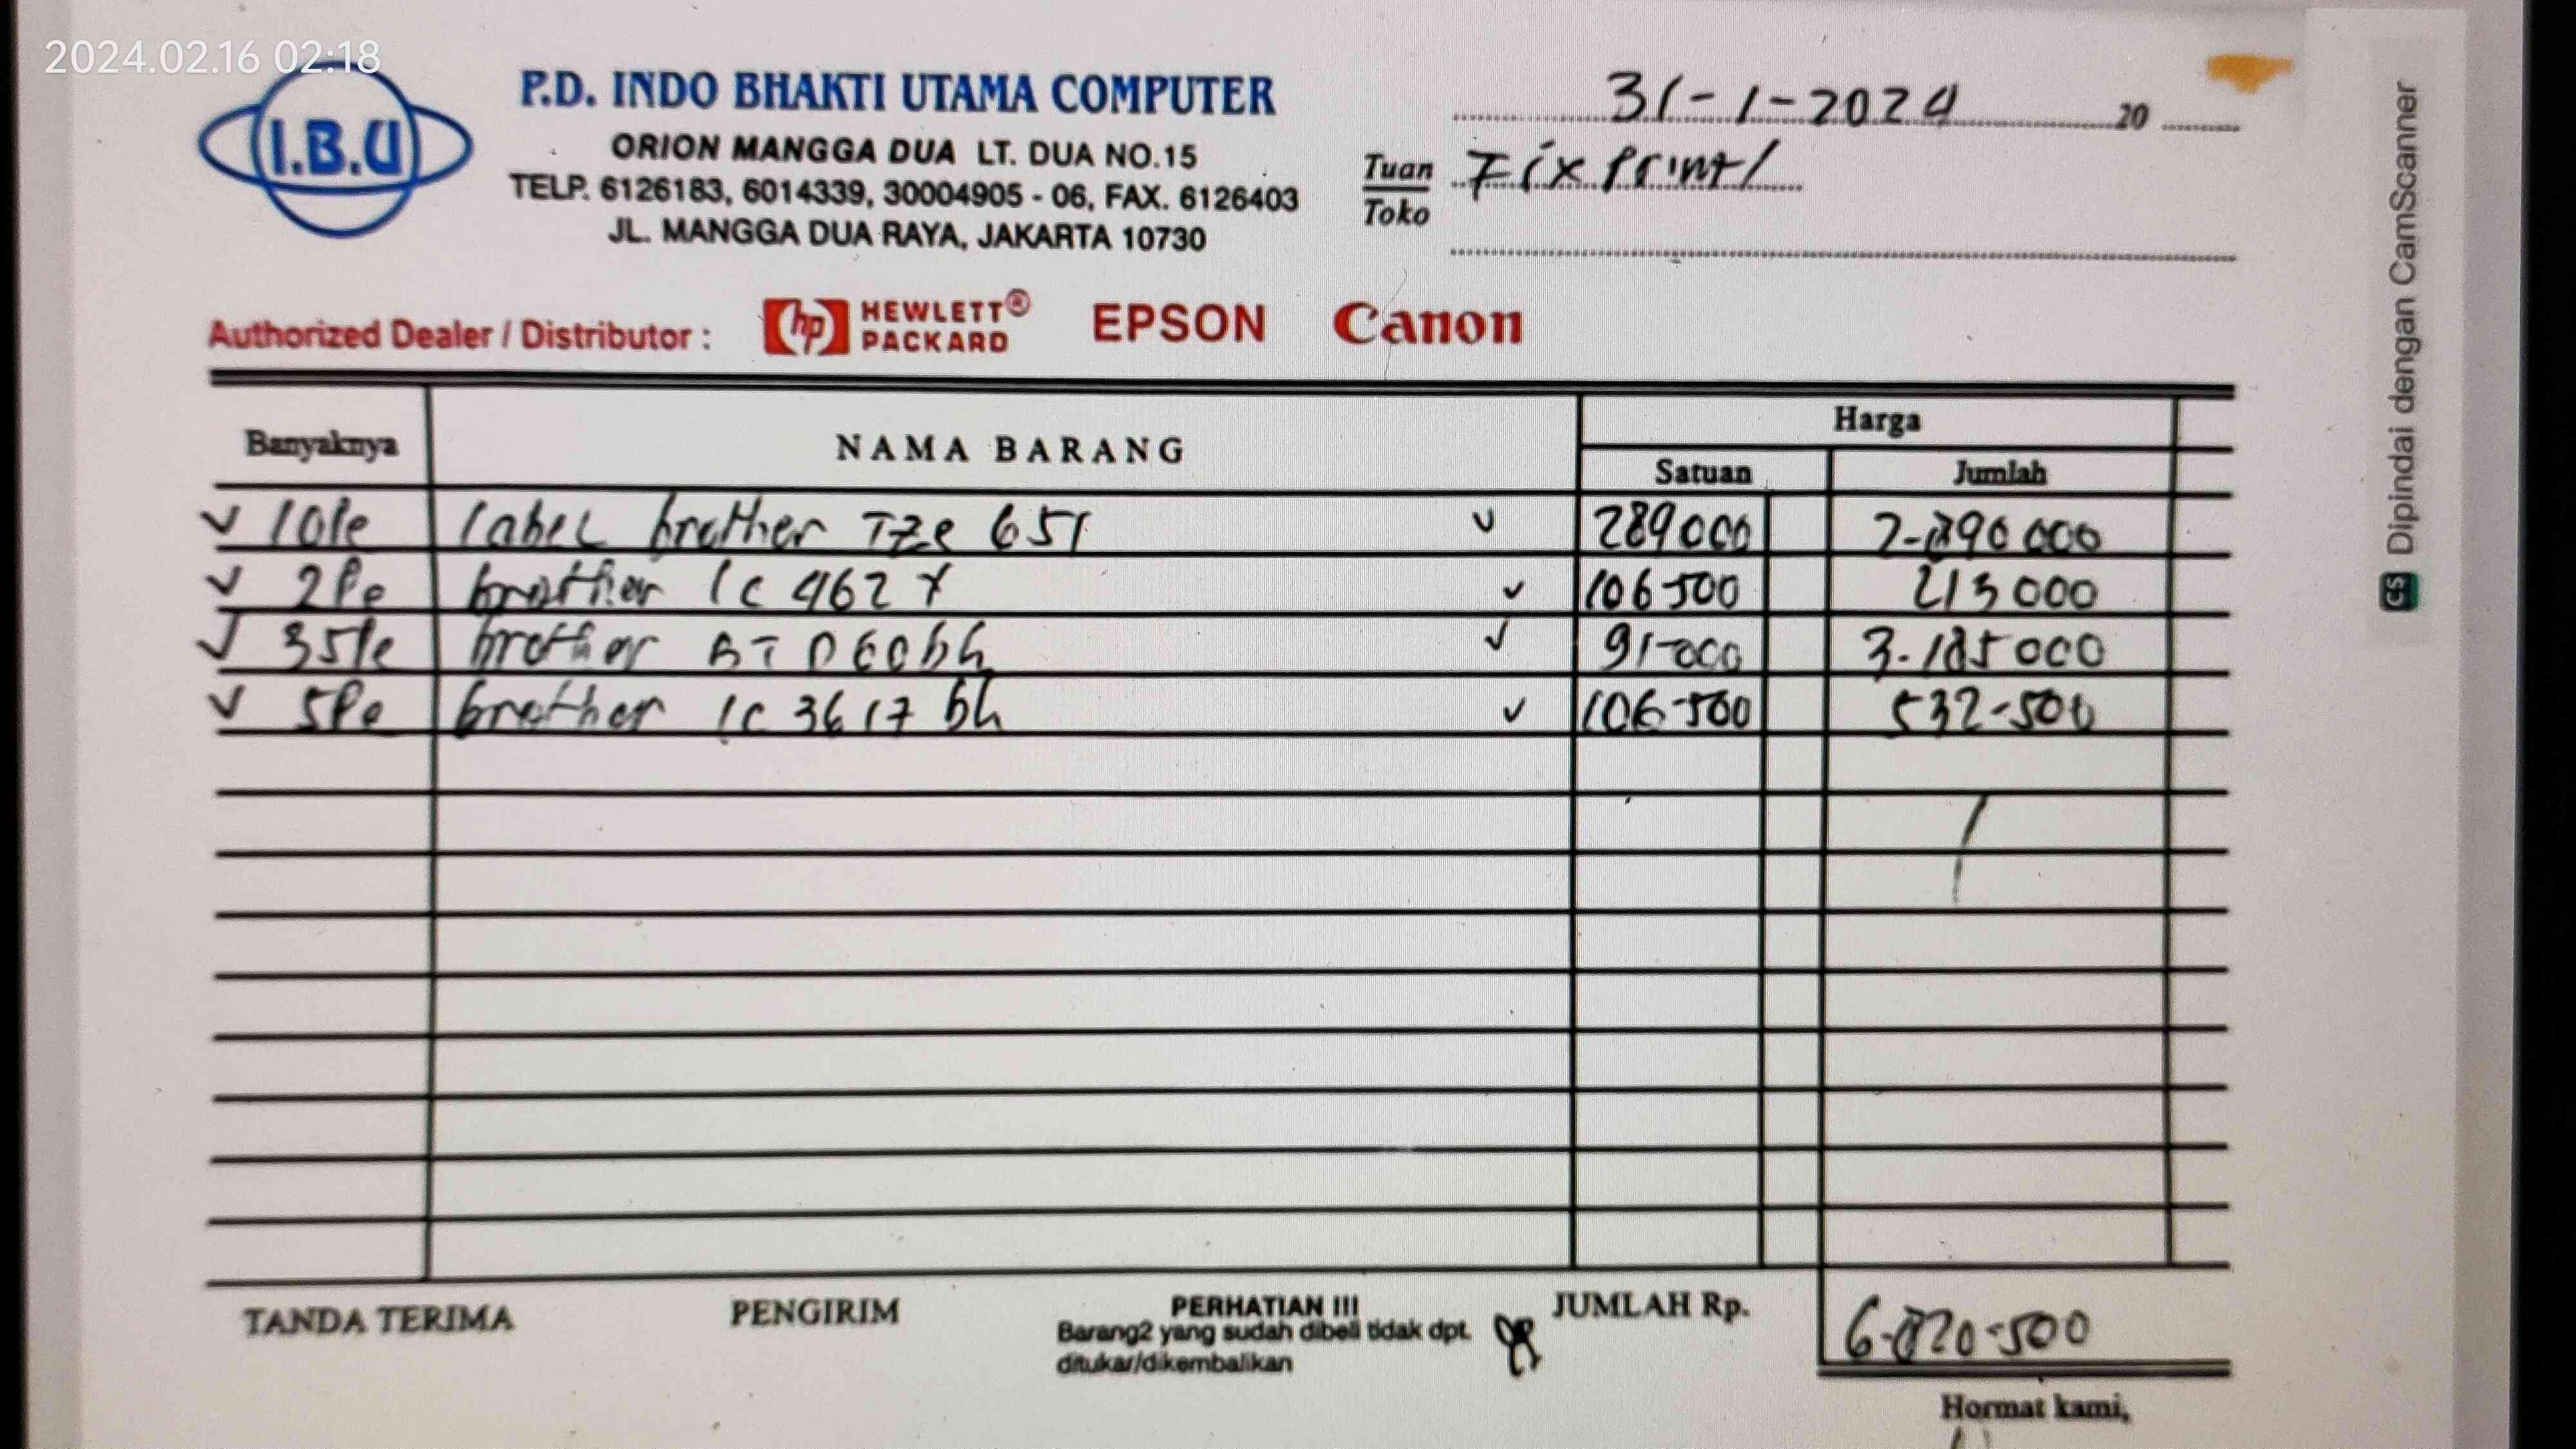 2024.02.16 02:18
I.B.U
P.D. INDO BHAKTI UTAMA COMPUTER
ORION MANGGA DUA LT. DUA NO.15
TELP. 6126183, 6014339, 30004905 - 06, FAX. 6126403
JL. MANGGA DUA RAYA, JAKARTA 10730
31-1-2024 20
Tuan Fix Print
Toko
Authorized Dealer / Distributor : hp HEWLETT® PACKARD EPSON Canon
Banyaknya NAMA BARANG Harga
Satuan Jumlah
10 label brother TZe 651 289000 2-890000
2 brother lc 462 106500 213000
35 brother BT D60bk 91-000 3.185000
5 brother lc 3617 bk 106-500 532-500
TANDA TERIMA PENGIRIM PERHATIAN !!! JUMLAH Rp. 6-820-500
Barang2 yang sudah dibeli tidak dpt.
ditukar/dikembalikan
Hormat kami,
CS Dipindai dengan CamScanner